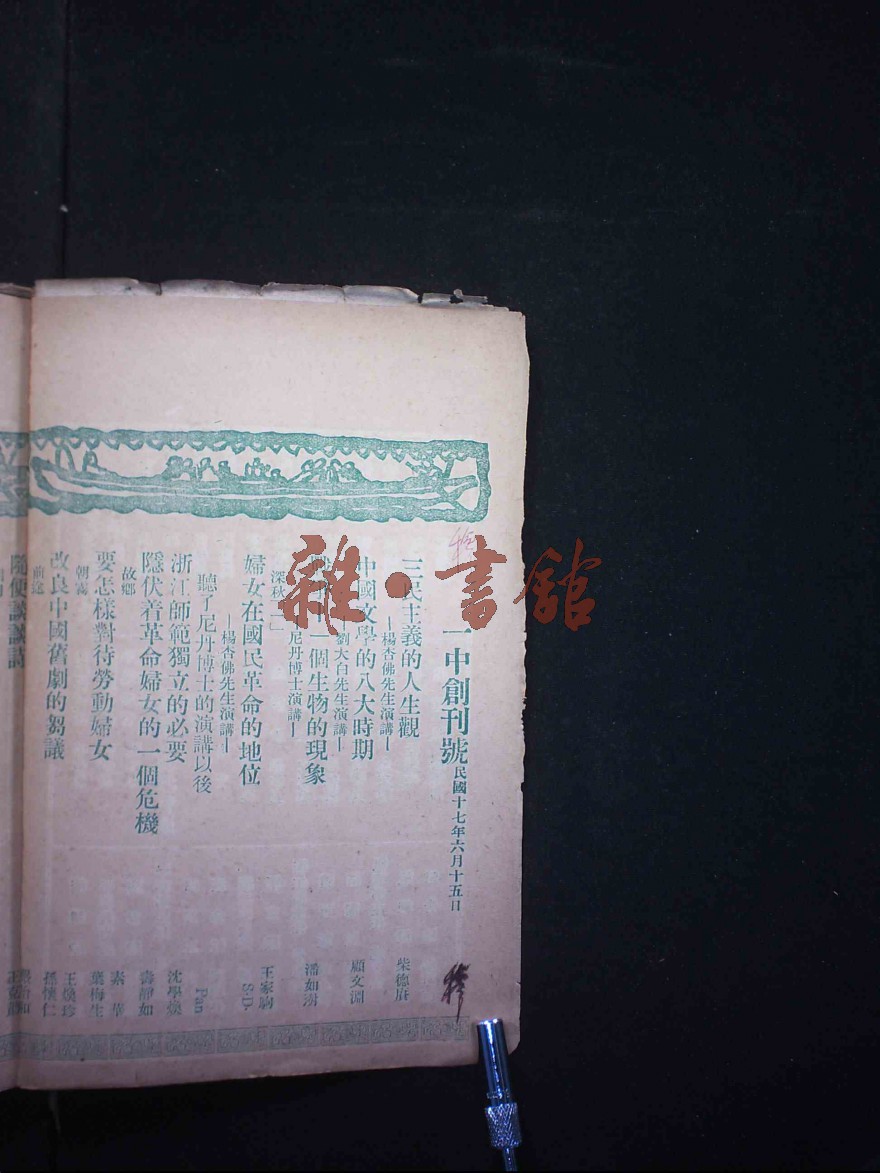 一中創刊號 民國十七年六月十五日
三民主義的人生觀
—楊杏佛先生演講—
柴德賡
中國文學的八大時期
劉大白先生演講—
顧文淵
一個生物的現象
尼丹博士演講—
潘如澍
深秋
王家駒
婦女在國民革命的地位
—楊杏佛先生演講—
S.D.
聽了尼丹博士的演講以後
Pan
浙江師範獨立的必要
沈學
隱伏着革命婦女的一個危機
壽靜如
故鄉
素 華
要怎樣對待勞動婦女
葉梅生
朝霧
王 珍
改良中國舊劇的芻議
孫懷仁
前途
隨便談談詩
雜·書館